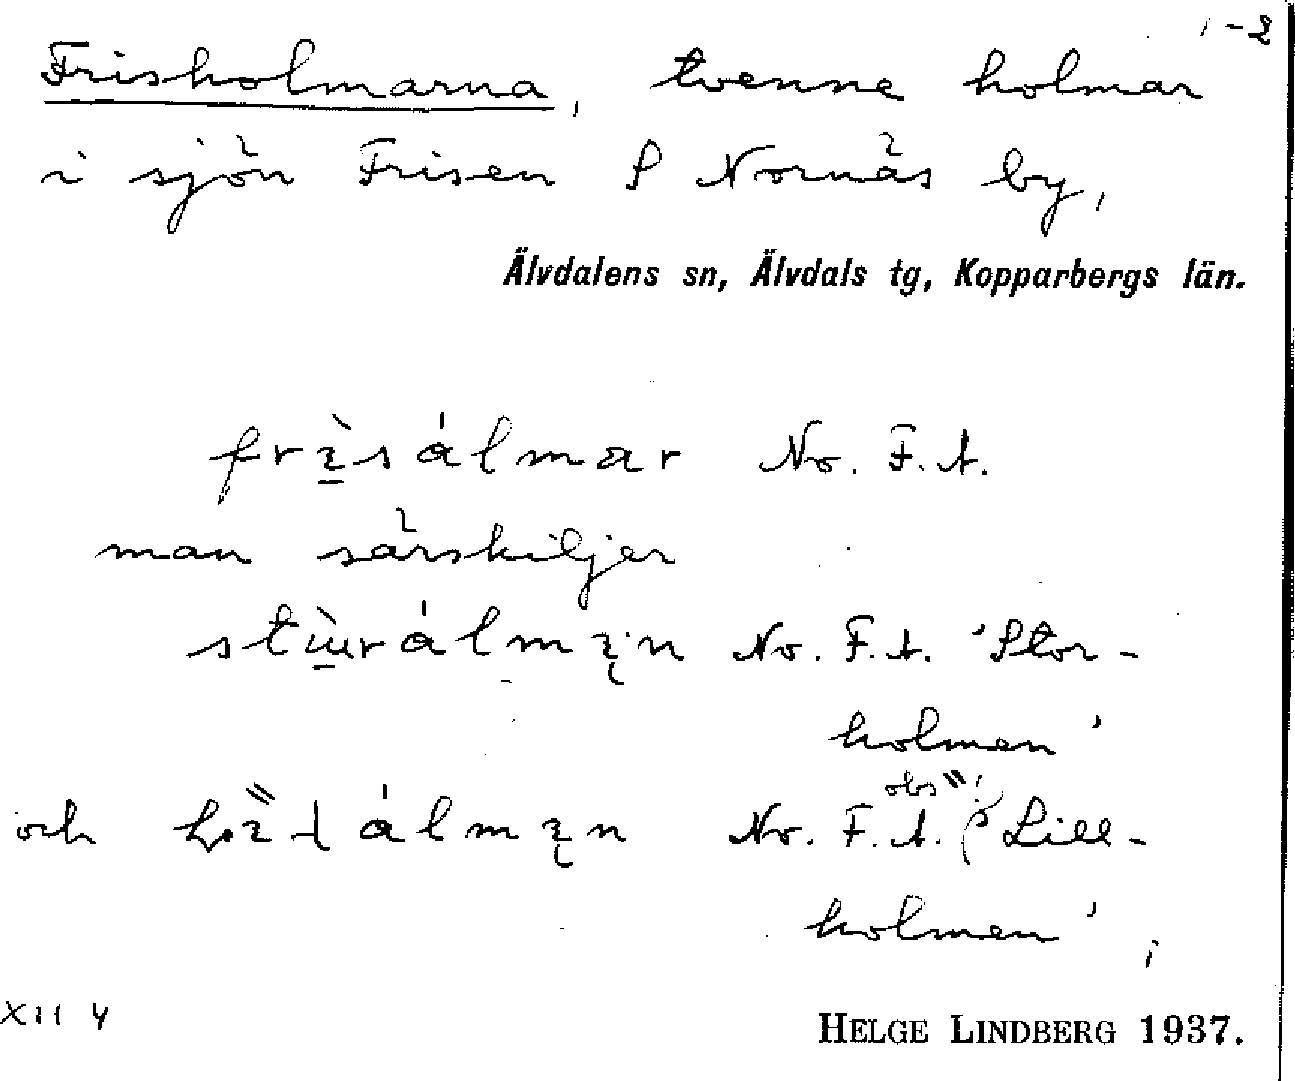 1-2
Frisholmarna, tvenne holmar
i sjön Frisen S Nornäs by,
Älvdalens sn, Älvdals tg, Kopparbergs län.
No. F. A.
man särskiljer
No. F. A. 'Stor-
holmen'
obs "!
och No. F. A. 'Lill-
holmen',
XII 4
HELGE LINDBERG 1937.